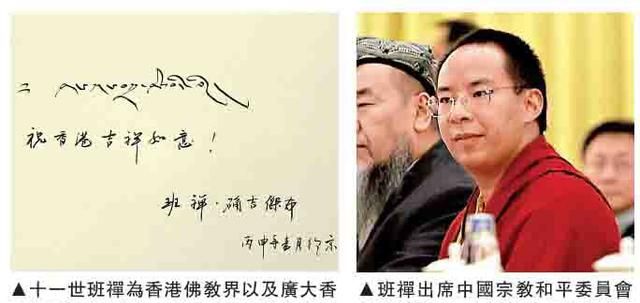 祝香港吉祥如意！
班禪·确吉傑布
丙申年 月於京
▲十一世班禪為香港佛教界以及廣大香
▲班禪出席中國宗教和平委員會